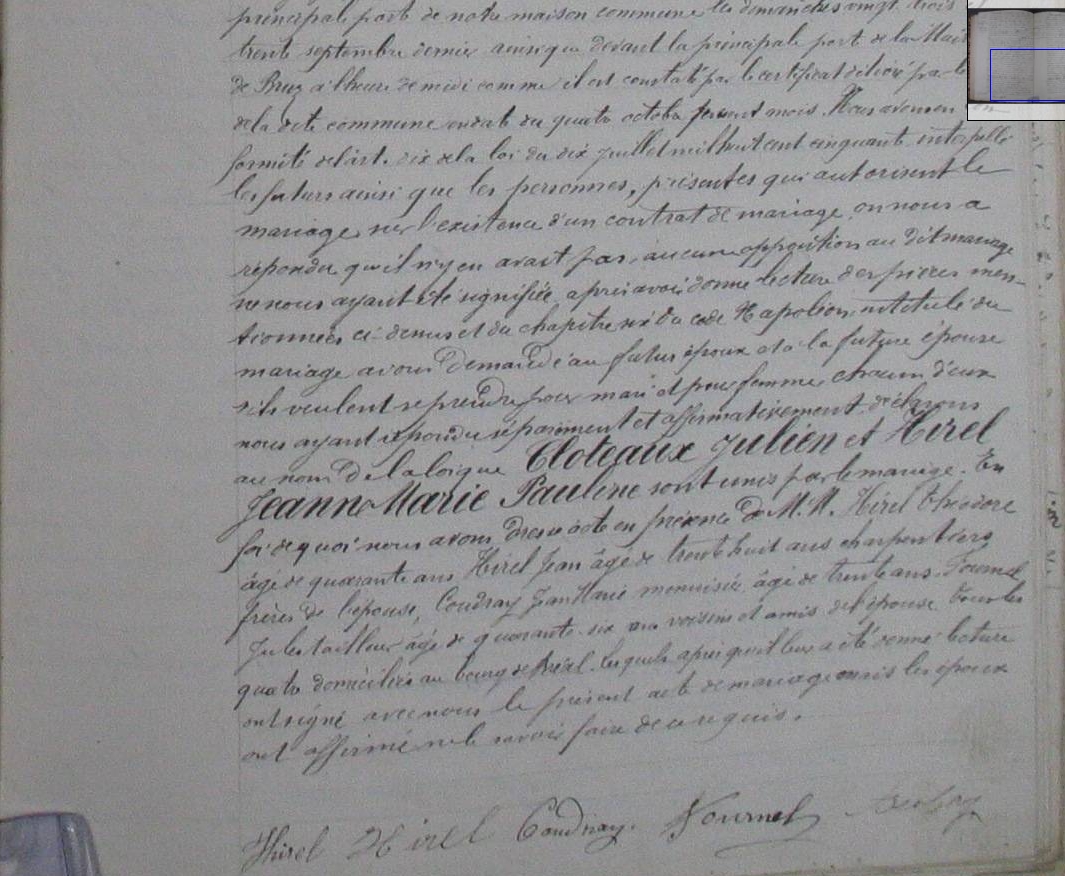 principale port de notre maison commune les dimanches vingt trois
trente septembre dernier ainsi que devant la principale port de la
de Bruz a l'heure de midi comme il est constaté par le certificat délivré par le
de la dite commune en date du quatre octobre present mois. Nous avons en
formité de l'art. dix de la loi du dix juillet mil huit cent cinquante interpellé
les futurs ainsi que les personnes, présentes qui autorisent le
mariage, sur l'existence d'un contrat de mariage, on nous a
répondu qu'il n'y en avait pas, aucune opposition au dit mariage
ne nous ayant été signifiée, après avoir donné lecture des pièces men-
tionnées ci-dessus et du chapitre six du code Napoléon, intitulé du
mariage avons demandé au futur époux et à la future épouse
s'ils veulent se prendre pour mari et pour femme, chacun d'eux
nous ayant répondu séparément et affirmativement, déclarons
au nom de la loi que Cloteaux Julien et Hirel
Jeanne Marie Pauline sont unis par le mariage. En
foi de quoi nous avons dressé acte en présence de M.M. Hirel théodore
âgé de quarante ans Hirel Jean âgé de trente huit ans charpentiers
frères de l'épouse, Coudray Jean Marie menuisier, âgé de trente ans. Tournel
Jules tailleur âgé de quarante-six ans voisins et amis de l'épouse, tous les
quatre domiciliés au bourg de Bréal. lesquels après qu'il leur a été donné lecture
ont signé avec nous le présent acte de mariage mais les époux
ont affirmé ne le savoir faire de ce requis.
Hirel Hirel Coudray. Tournel